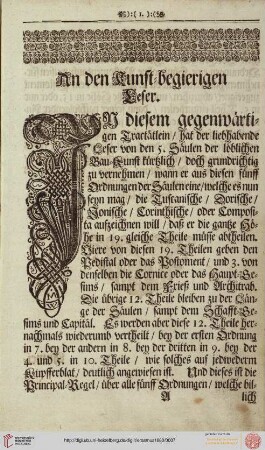 ):( 1. ):(
An den Kunst-begierigen
Leser.
IN diesem gegenwärti-
gen Tractätlein / hat der liebhabende
Leser von den 5. Säulen der löblichen
Bau-Kunst kürtzlich / doch grundrichtig
zu vernehmen / wann er aus diesen fünff
Ordnungen der Säulen eine / welche es nun
seyn mag / die Tuscanische / Dorische /
Jonische / Corinthische / oder Composi-
ta aufzeichnen will / daß er die gantze Hö-
he in 19. gleiche Theile müsse abtheilen.
Viere von diesen 19. Theilen geben den
Pedistal oder das Postoment / und 3. von
denselben die Cornice oder das Haupt-Ge-
sims / sampt dem Frieß und Architrab.
Die übrige 12. Theile bleiben zu der Län-
ge der Säulen / sampt dem Schafft-Ge-
sims und Capitäl. Es werden aber diese 12. Theile her-
nachmals wiederumb vertheilt / bey der ersten Ordnung
in 7. bey der andern in 8. bey der dritten in 9. bey der
4. und 5. in 10. Theile / wie solches auf jedwederm
Kupfferblat / deutlich angewiesen ist. Und dieses ist die
Principal-Regel / über alle fünff Ordnungen / welche bil-
A lich